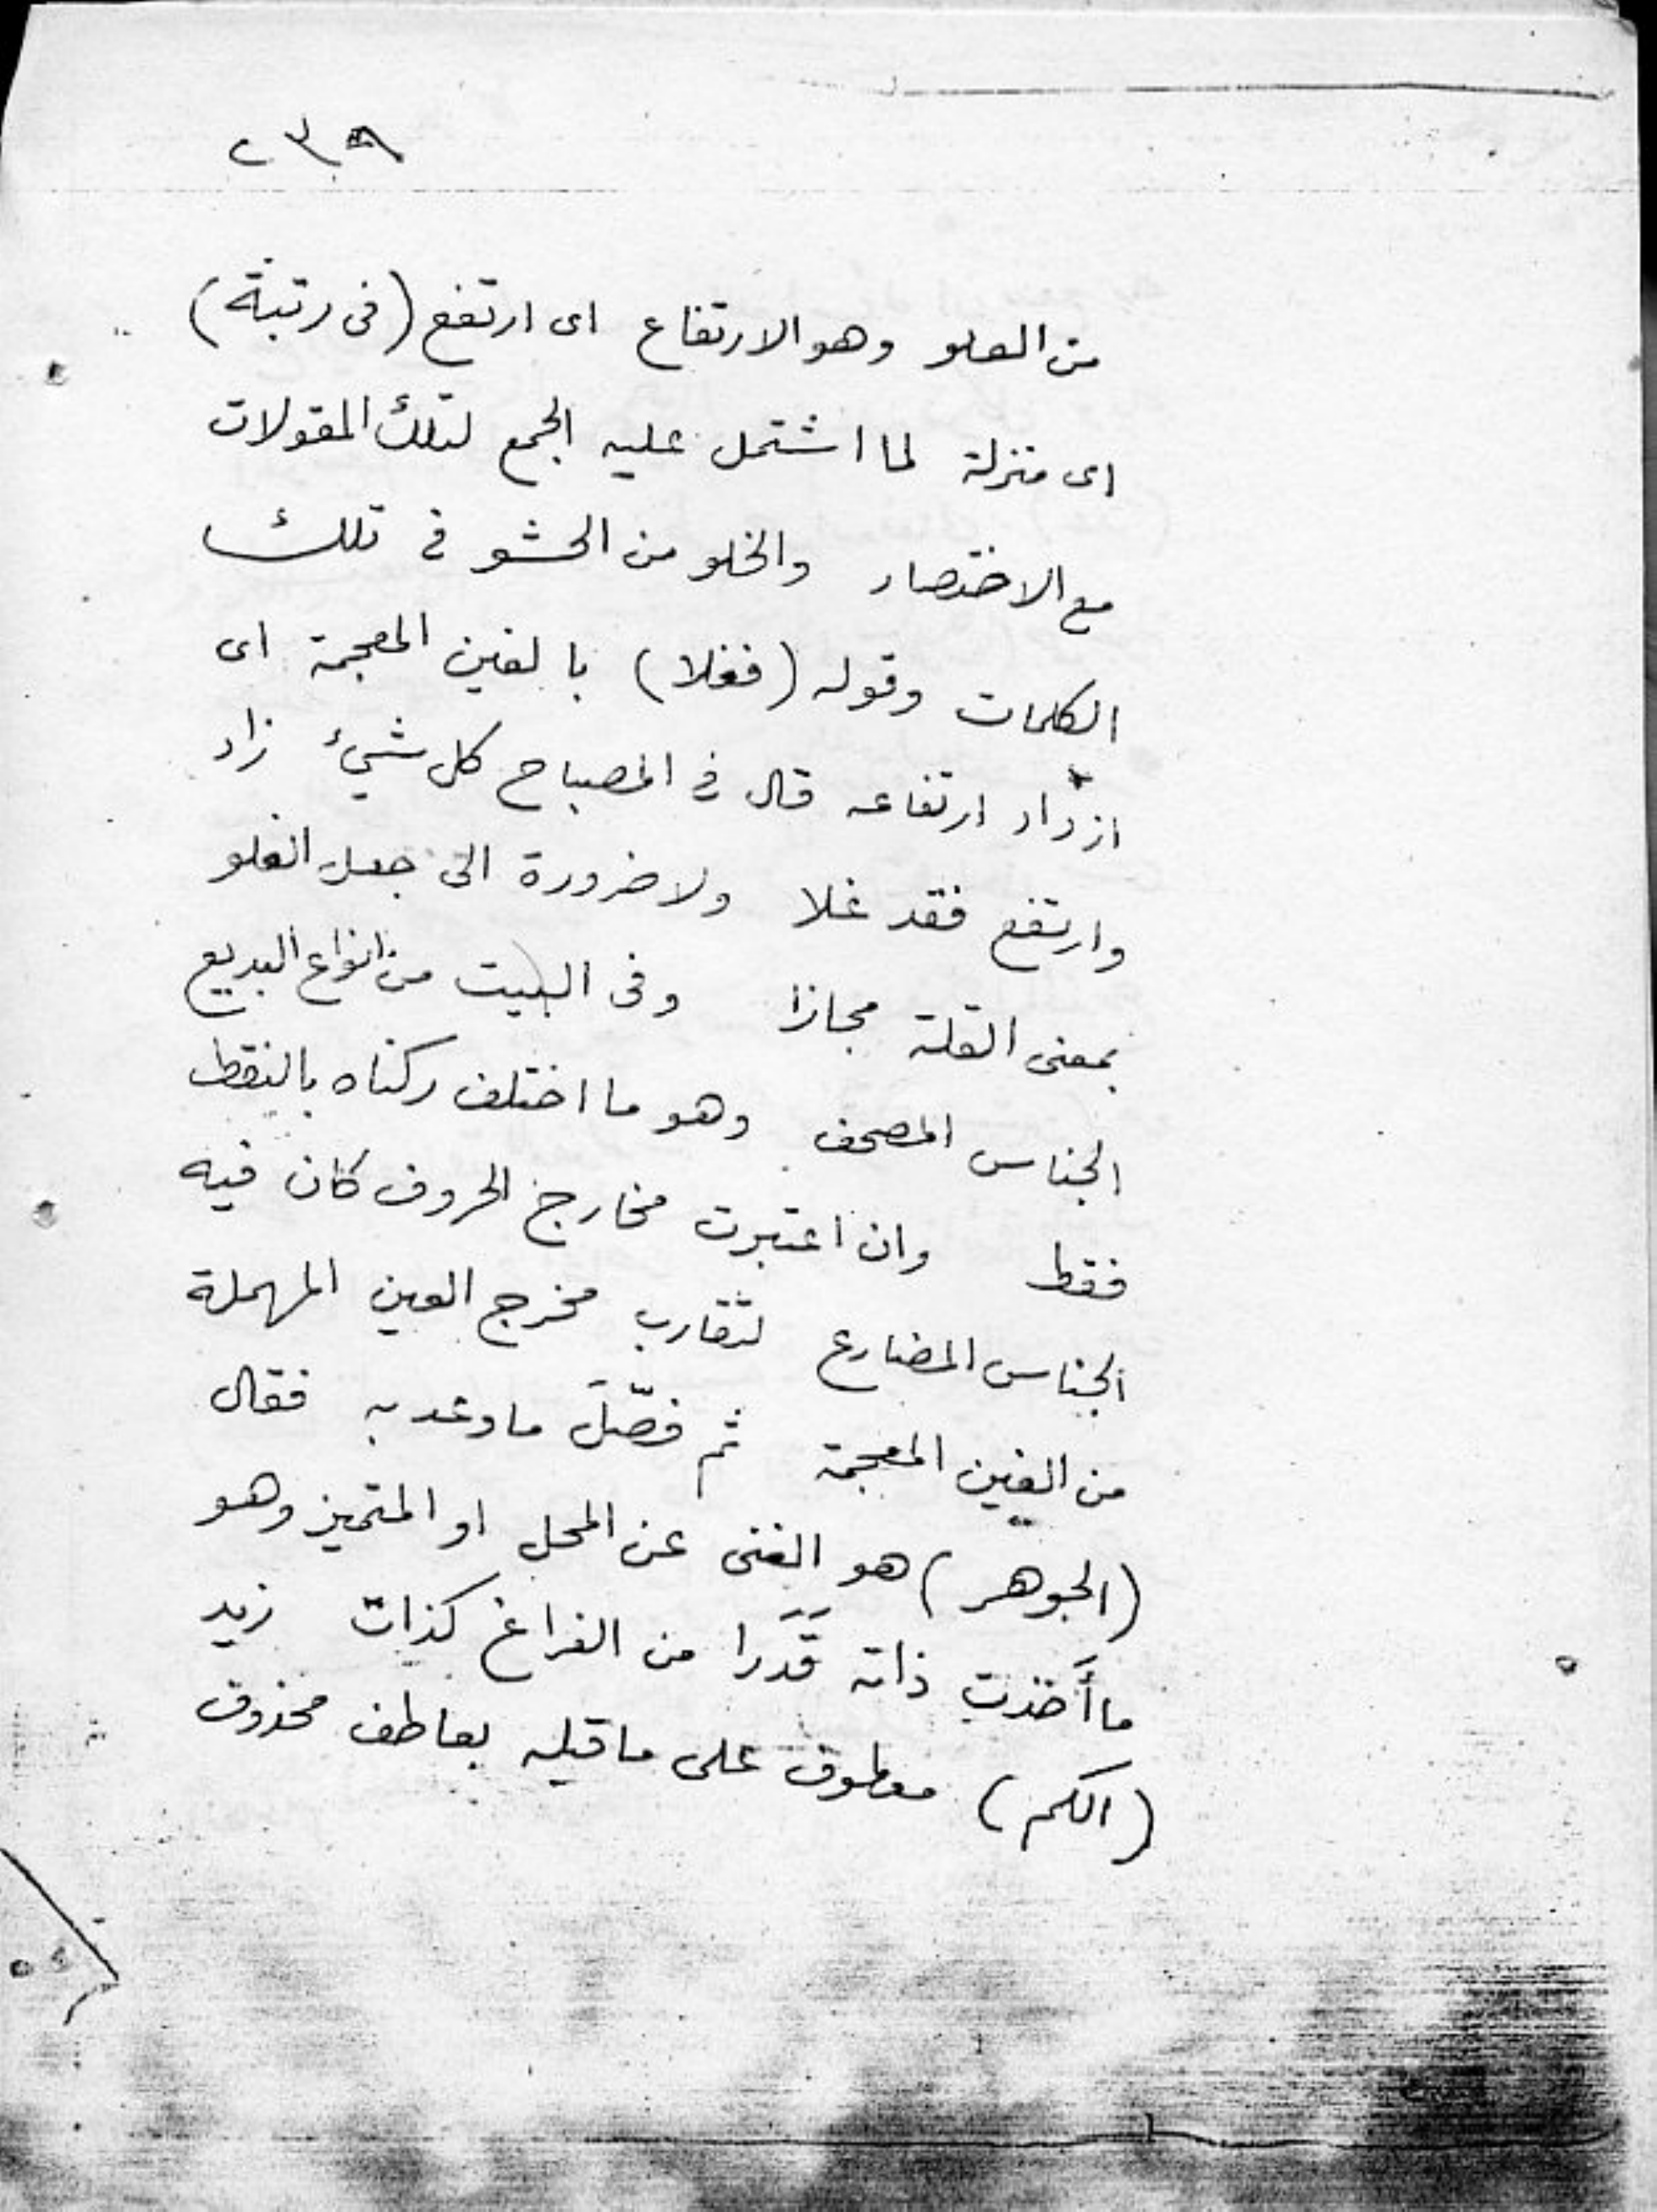 ٢٣٩
من العلو وهو الارتفاع اى ارتفع (فى رتبة)
اى منزلة لما اشتمل عليه الجمع لتلك المقولات
مع الاختصار والخلو من الحشو فى تلك
الكلمات وقوله (فغلا) بالغين المعجمة اى
ازداد ارتفاعه قال فى المصباح كل شيء زاد
وارتفع فقد غلا ولا ضرورة الى جعل الغلو
بمعنى القلة مجازا وفى البيت من انواع البديع
الجناس المصحف وهو ما اختلف ركناه بالنقط
فقط وان اعتبرت مخارج الحروف كان فيه
الجناس المضارع لتقارب مخرج العين المهملة
من الغين المعجمة ثم فصّلَ ما وعد به فقال
(الجوهر) هو الغنى عن المحل او المتميز وهو
ما أَخذت ذاته قَدَرا من الفراغ كذات زيد
(الكم) معطوف على ما قبله بعاطف محذوف